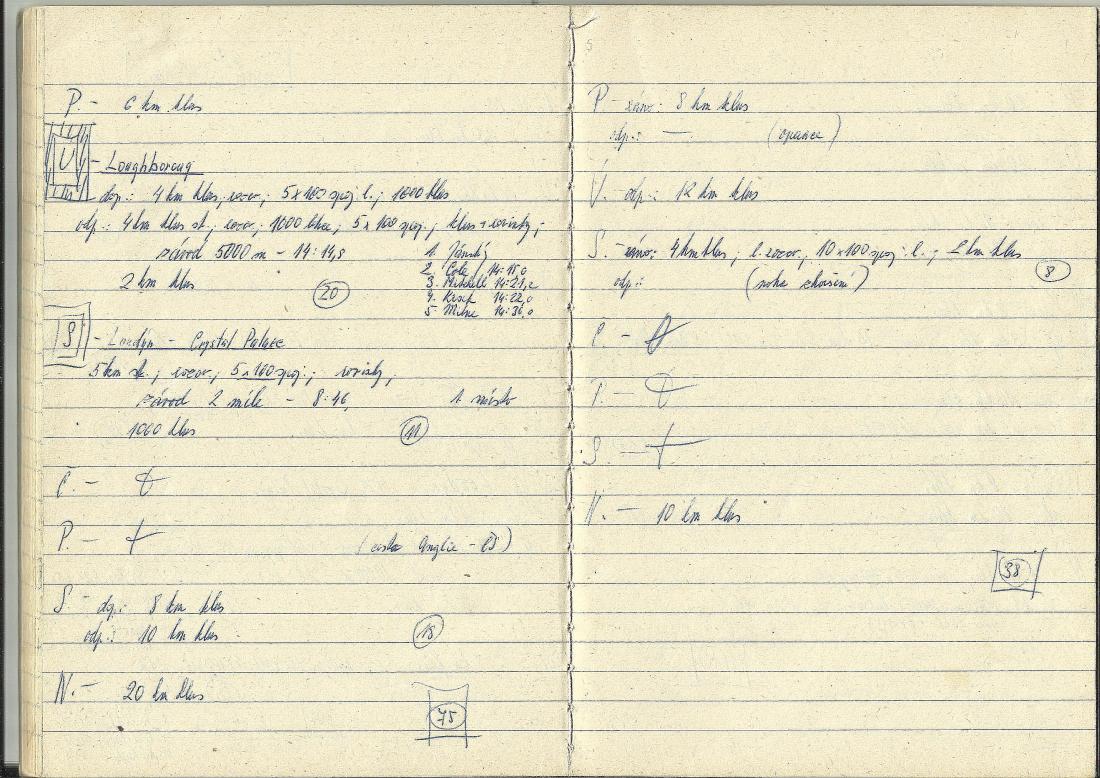 P. - 6 km klus
Ú - Loughboroug
dop.: 4 km klus, rozcv., 5x100 spoj. l.; 1000 klus
odp.: 4 km klus st., rozcv., 1000 lehce, 5x100 spoj., klus + rovinky,
závod 5000 m - 14:14,8
1. Jánský
2. Cole 14:15,0
3. Mitchell 14:21,2
4. 14:22,0
5. Milne 14:36,0
2 km klus
20
S - Londýn - Crystal Palace
5 km st., rozcv., 5x100 spoj.; rovinky,
závod 2 míle - 8:46,
1. místo
1000 klus
11
Č. -
P. -
(cesta Anglie - ČS)
S - dop.: 8 km klus
odp.: 10 km klus
18
N. - 20 km klus
75
P - ráno: 8 km klus
odp.: — (opanee)
Ú. odp.: 12 km klus
S. - ráno: 4 km klus, l. rozcv., 10x100 spoj. l.; 2 km klus
8
odp.: (noha zhoršení)
Č. -
P. -
S. -
N. - 10 km klus
38